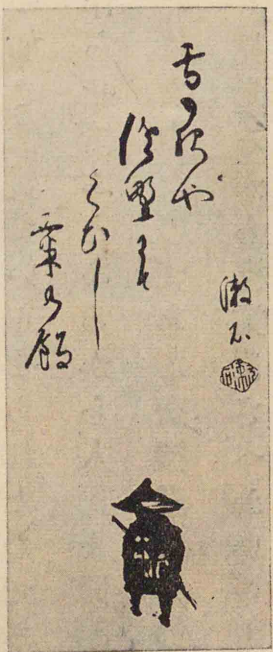 雪の夜や
佐野にて
くひし
粟の飯
漱石